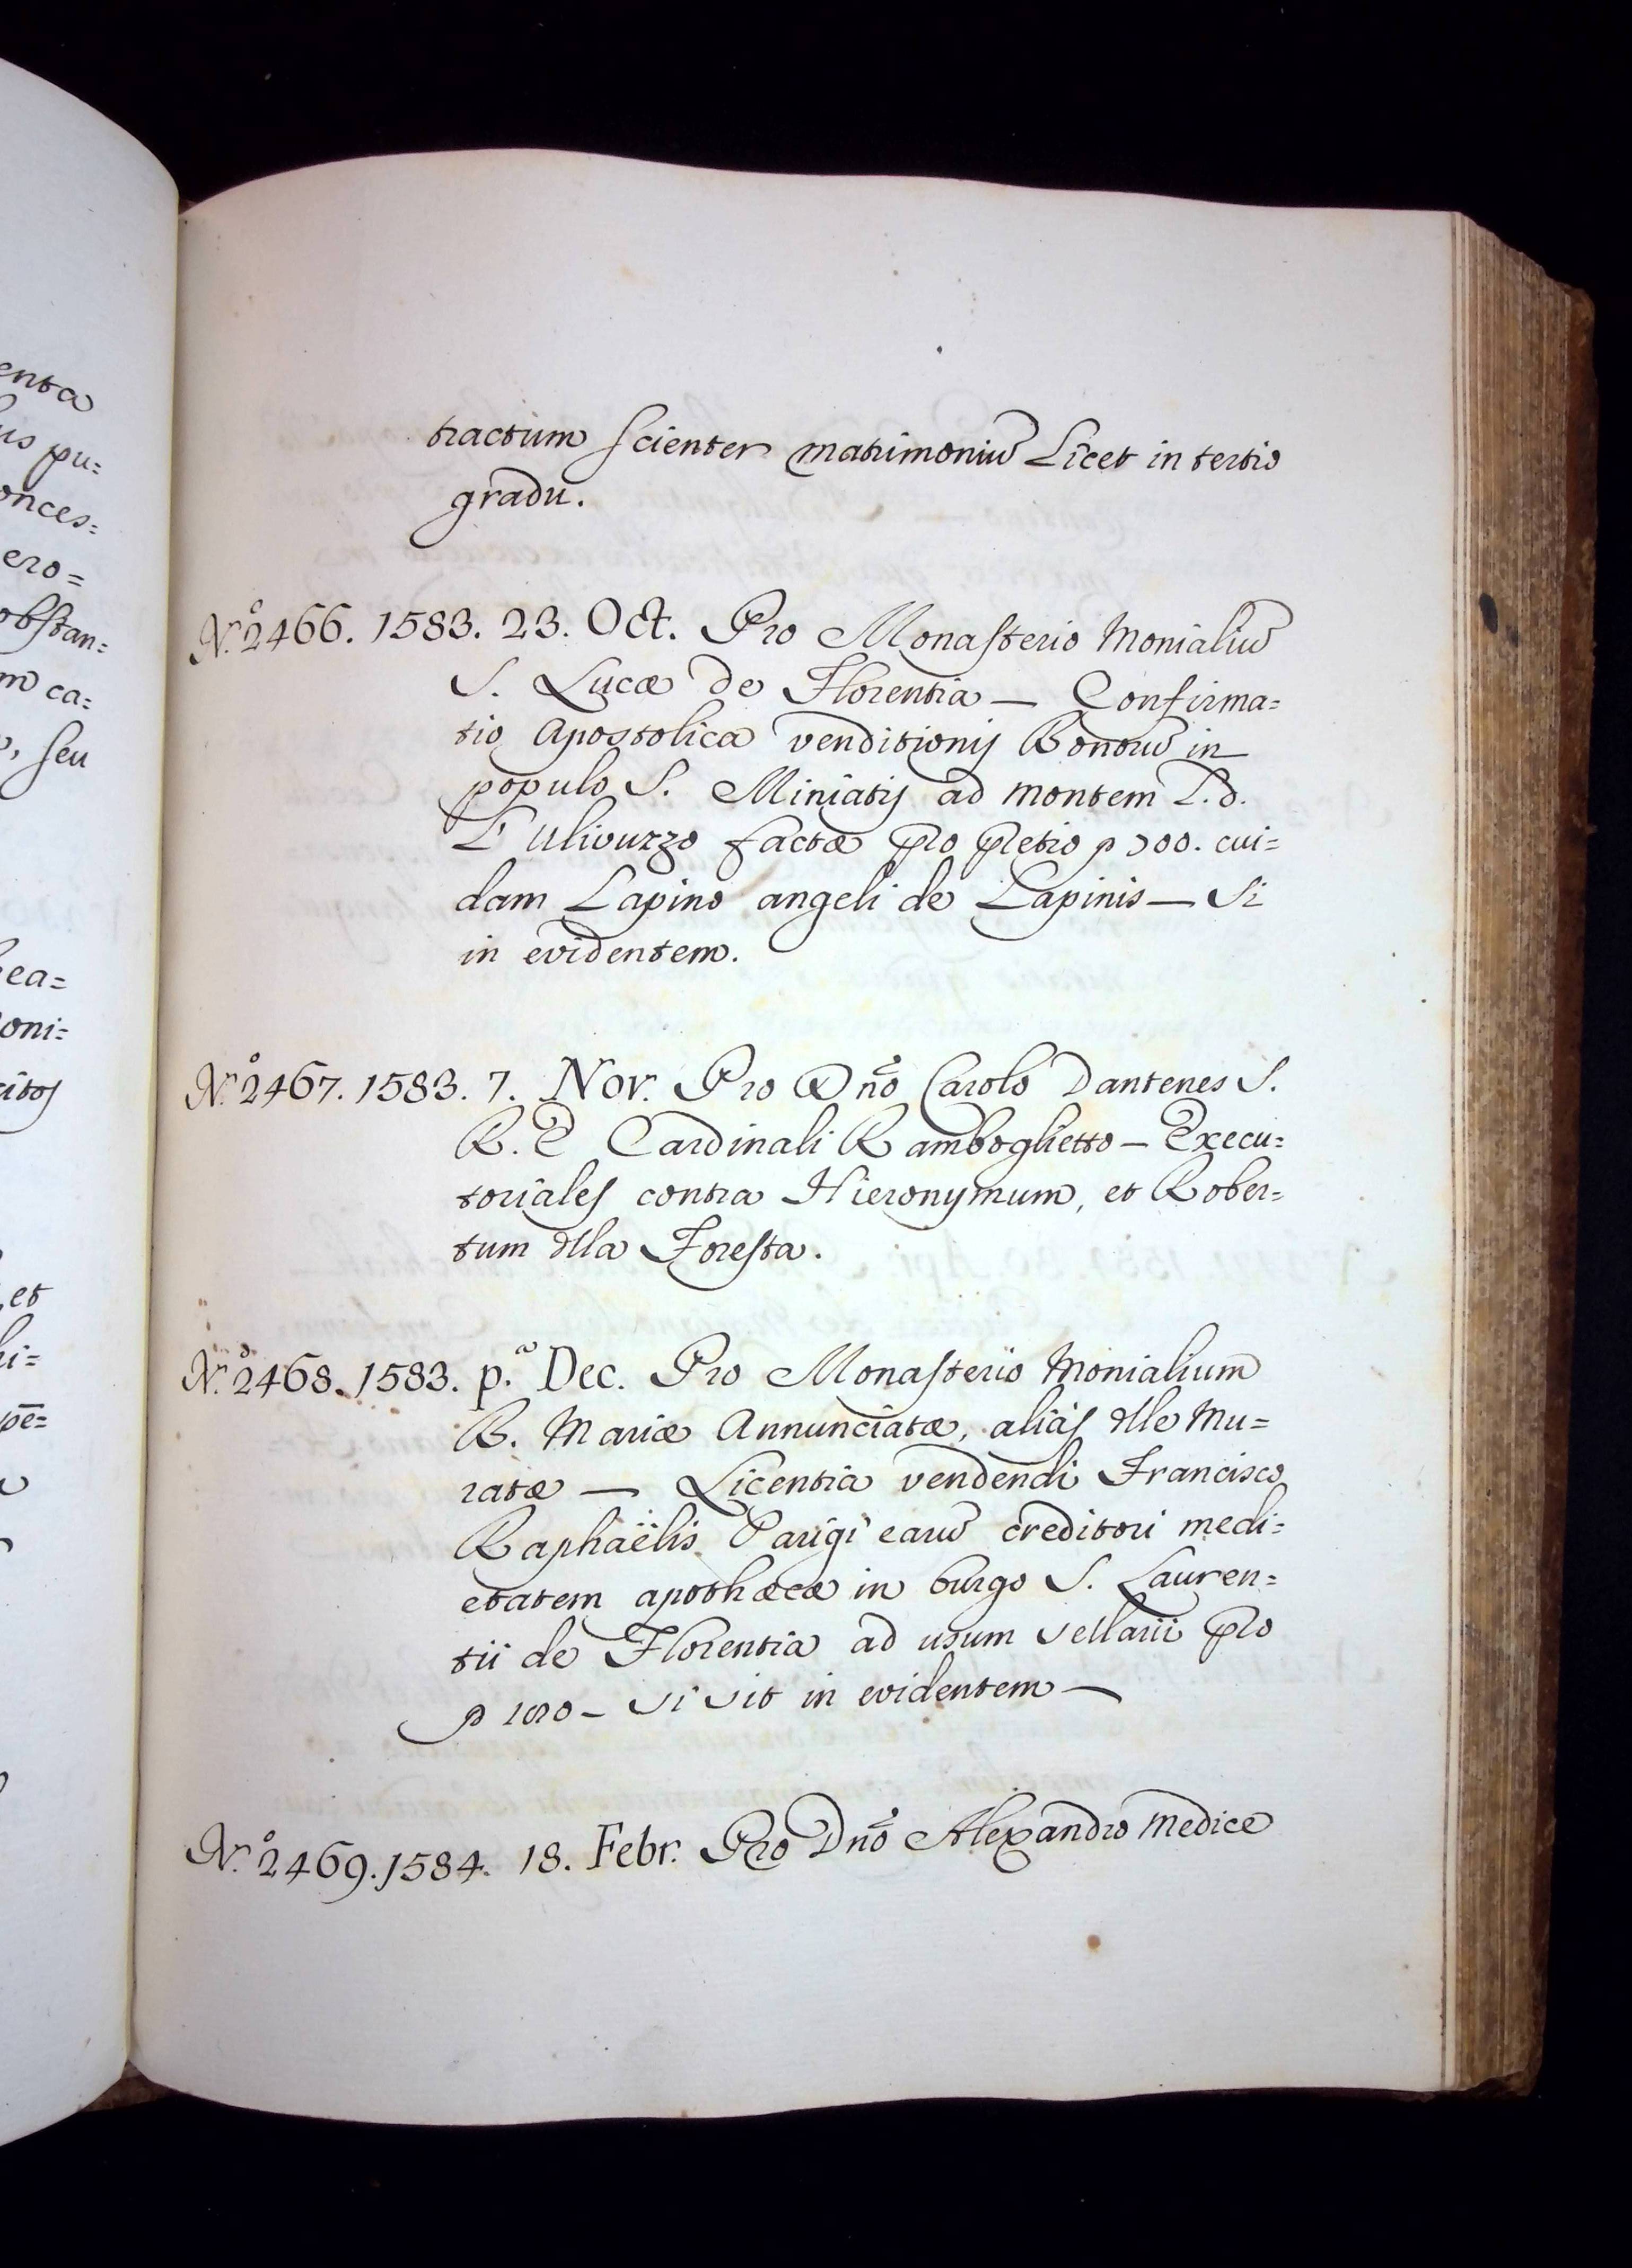 enta
us pu=
onces=
ero=
obstan=
m ca=
, seu
ea=
oni=
citos
, et
hi=
pē=
tractum scienter matrimoniū Licet in tertio
gradu.
N.º 2466. 1583. 23. Oct. Pro Monasterio Monialiū
S. Lucæ de Florentia — Confirma=
tio Apostolica venditionis Bonorū in
populo S. Miniatis ad Montem L. d.
L'Ulivuzzo factæ pro pretio 700. cui=
dam Lapino angeli de Lapinis — Si
in evidentem.
N.º 2467. 1583. 7. Nov. Pro Dño Carolo Dantenes S.
R. E Cardinali Ramboglietto — Execu=
toriales contra Hieronymum, et Rober=
tum dlla Foresta.
N.º 2468. 1583. p.ª Dec. Pro Monasterio Monialium
B. Mariæ Annunciatæ, aliàs dlle Mu=
ratæ — Licentia vendendi Francisco
Raphaëlis Parigi earū creditori medi=
etatem apothæcæ in burgo S. Lauren=
tii de Florentia ad usum sellarii pro
— si sit in evidentem —
N.º 2469. 1584. 18. Febr. Pro Dño Alexandro Medice